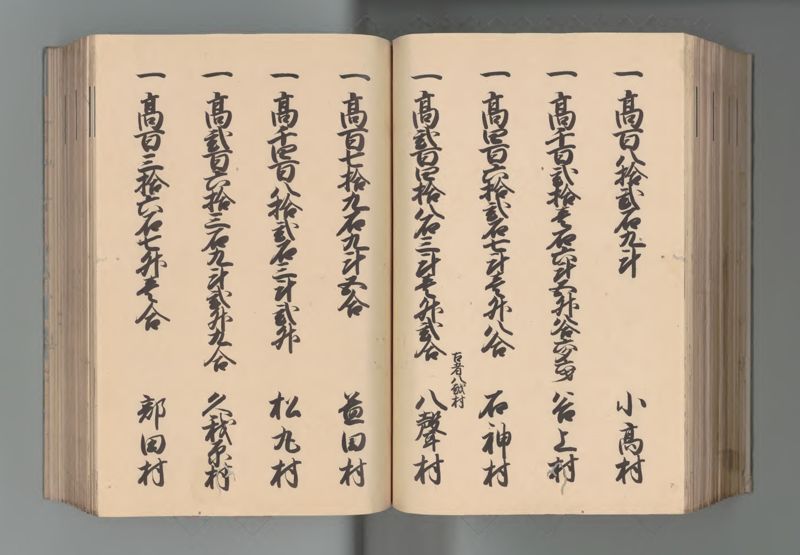 一 高百八拾弐石九斗 小高村
一 高千百弐拾壱石六斗五升八合六勺 谷上村
一 高四百六拾弐石七斗壱升八合 石神村
一 高弐百四拾八石三斗壱升弐合 八聲村
古者八 村
一 高百七拾九石九斗五合 益田村
一 高千四百八拾弐石三斗弐升 松丸村
一 高弐百六拾三石九斗弐升九合 久我原村
一 高百三拾六石七升壱合 部田村